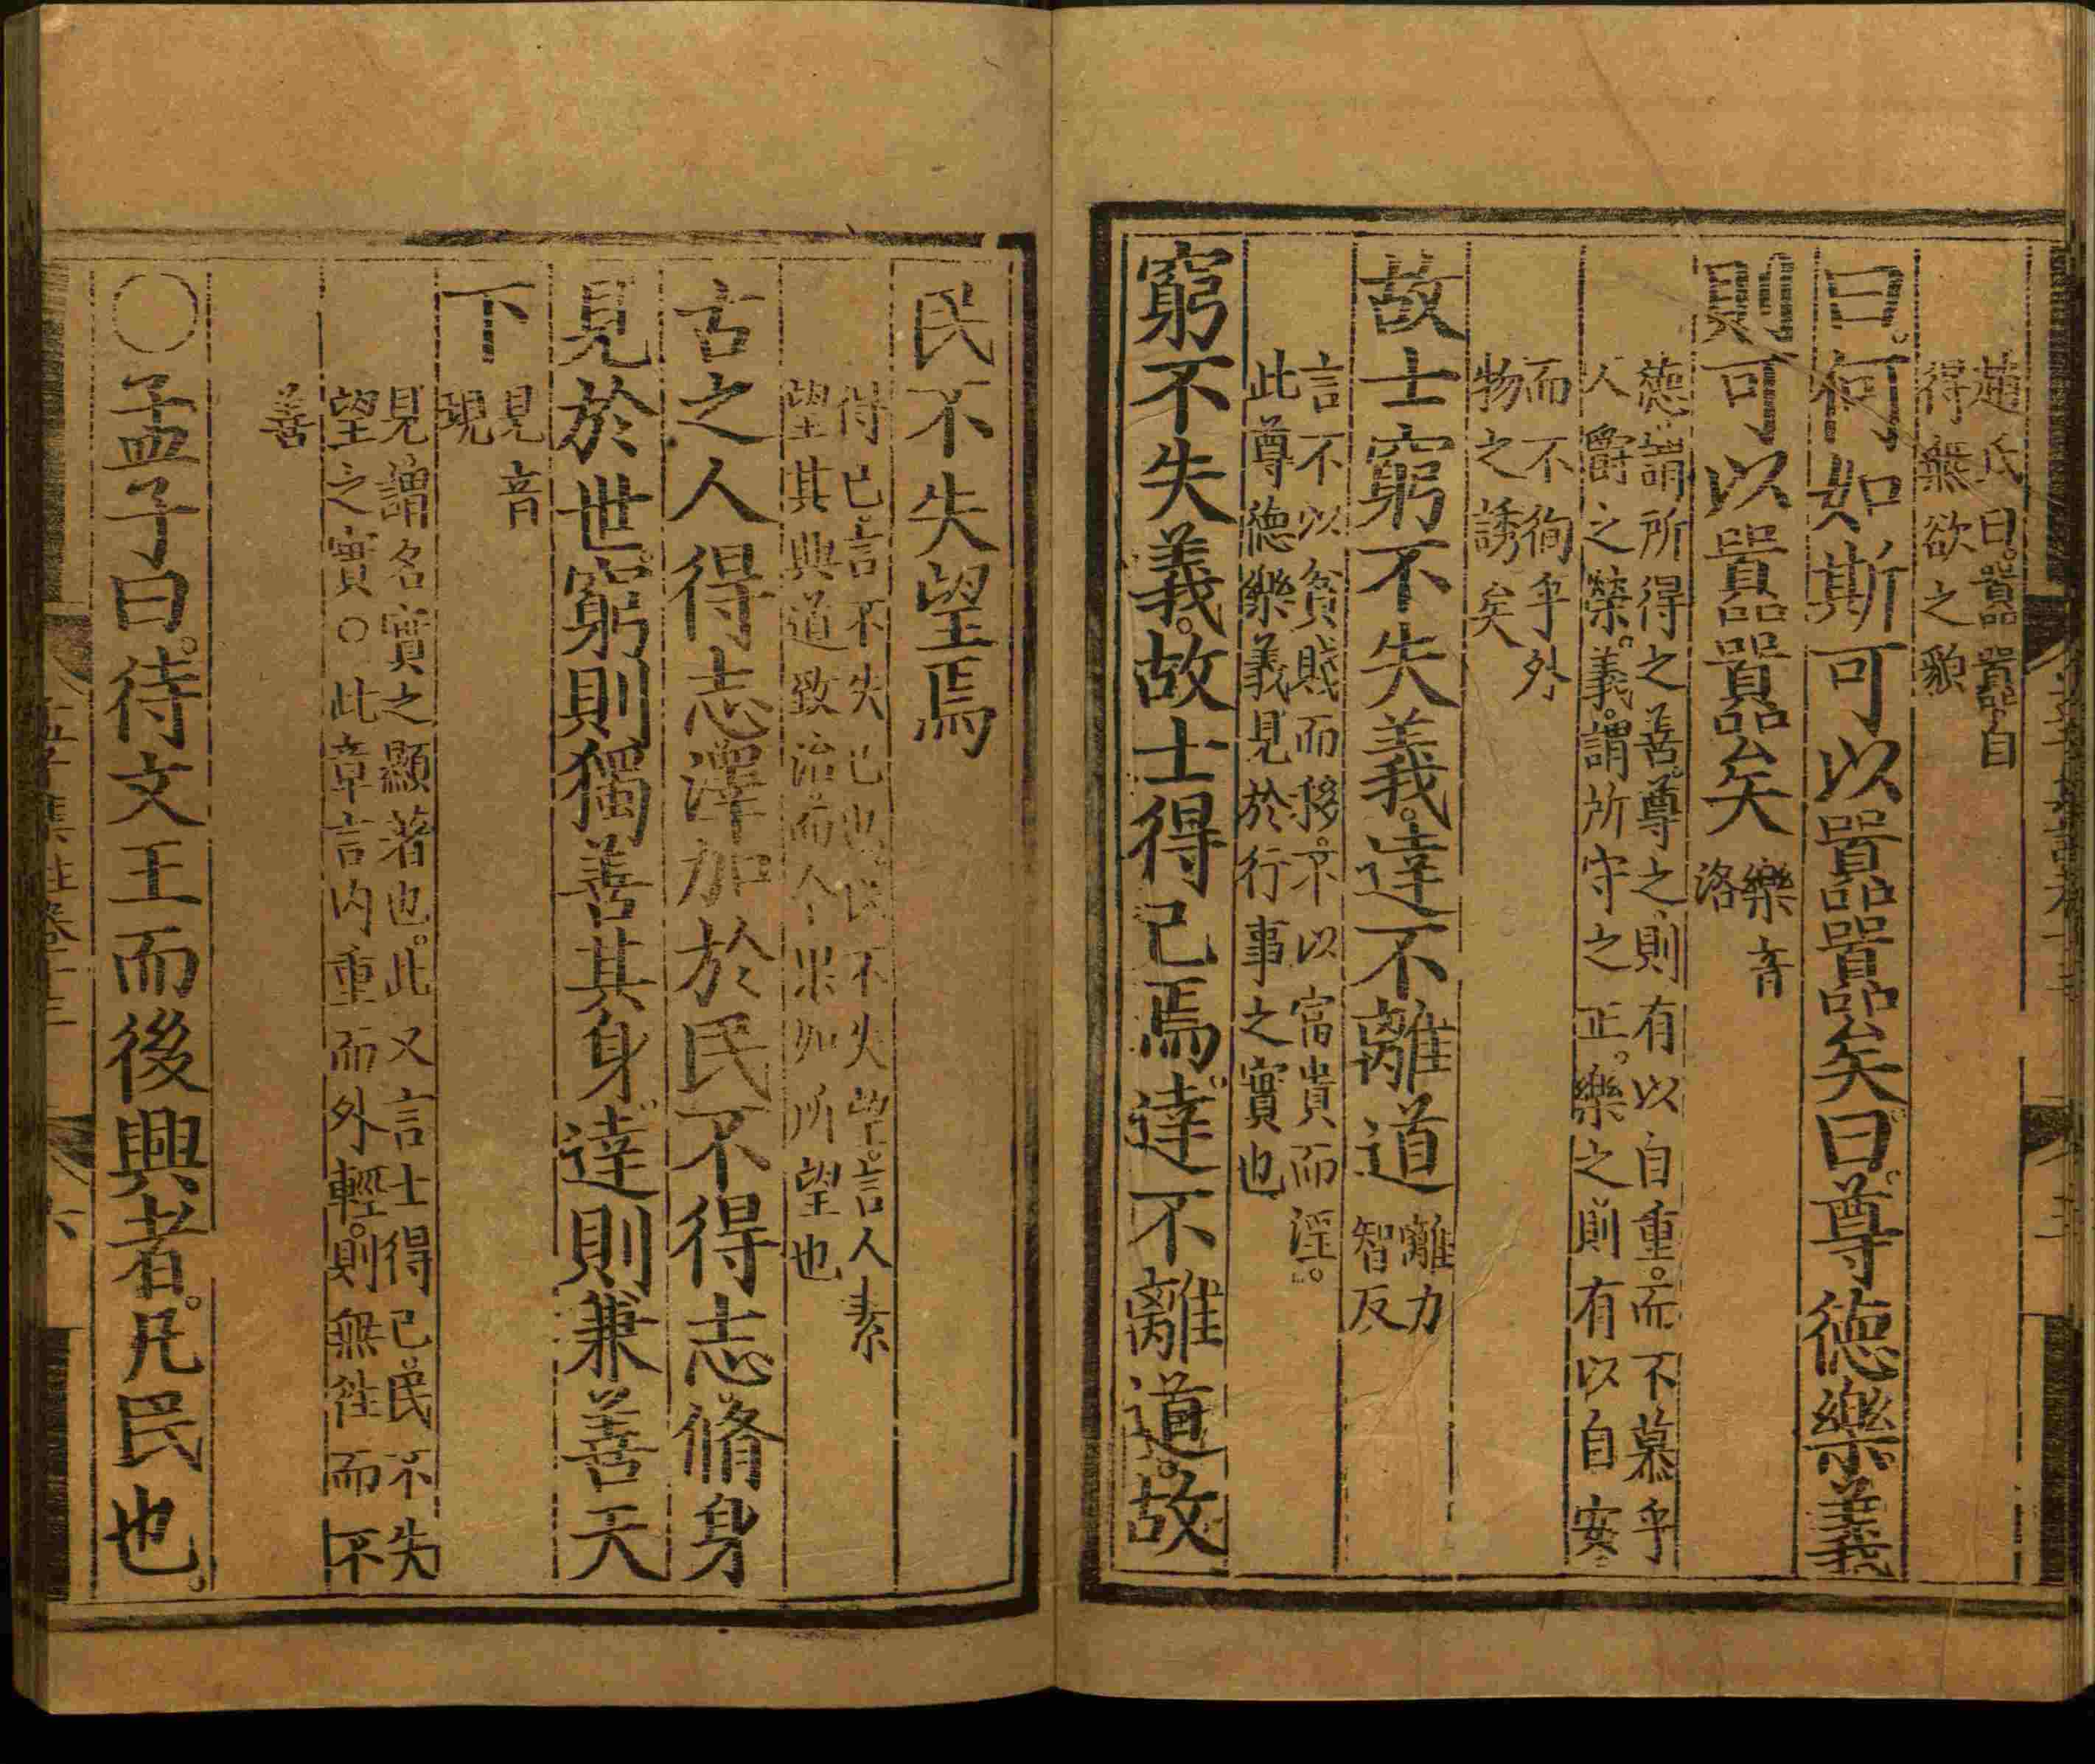 趙氏曰。囂囂自
得無欲之貌
曰。何如斯可以囂囂矣曰。尊德樂義
則可以囂囂矣
樂音
洛
德謂所得之善。尊之則有以自重。而不慕乎
人爵之榮。義。謂所守之正。樂之則有以自安
而不徇乎外
物之誘矣
故士窮不失義。達不離道
離力
智反
言不以貧賤而移。不以富貴而淫。
此尊德樂義見於行事之實也
窮不失義。故士得己焉。達不離道。故
民不失望焉
得己。言不失己也。民不失望。言人素
望其興道致治。而今果如所望也
古之人得志澤加於民不得志。脩身
見於世。窮則獨善其身。達則兼善天
下
見音
現
見謂名實之顯著也。此又言士得己民不失
望之實○此章言內重而外輕。則無往而不
善
○孟子曰。待文王而後興者。凡民也。